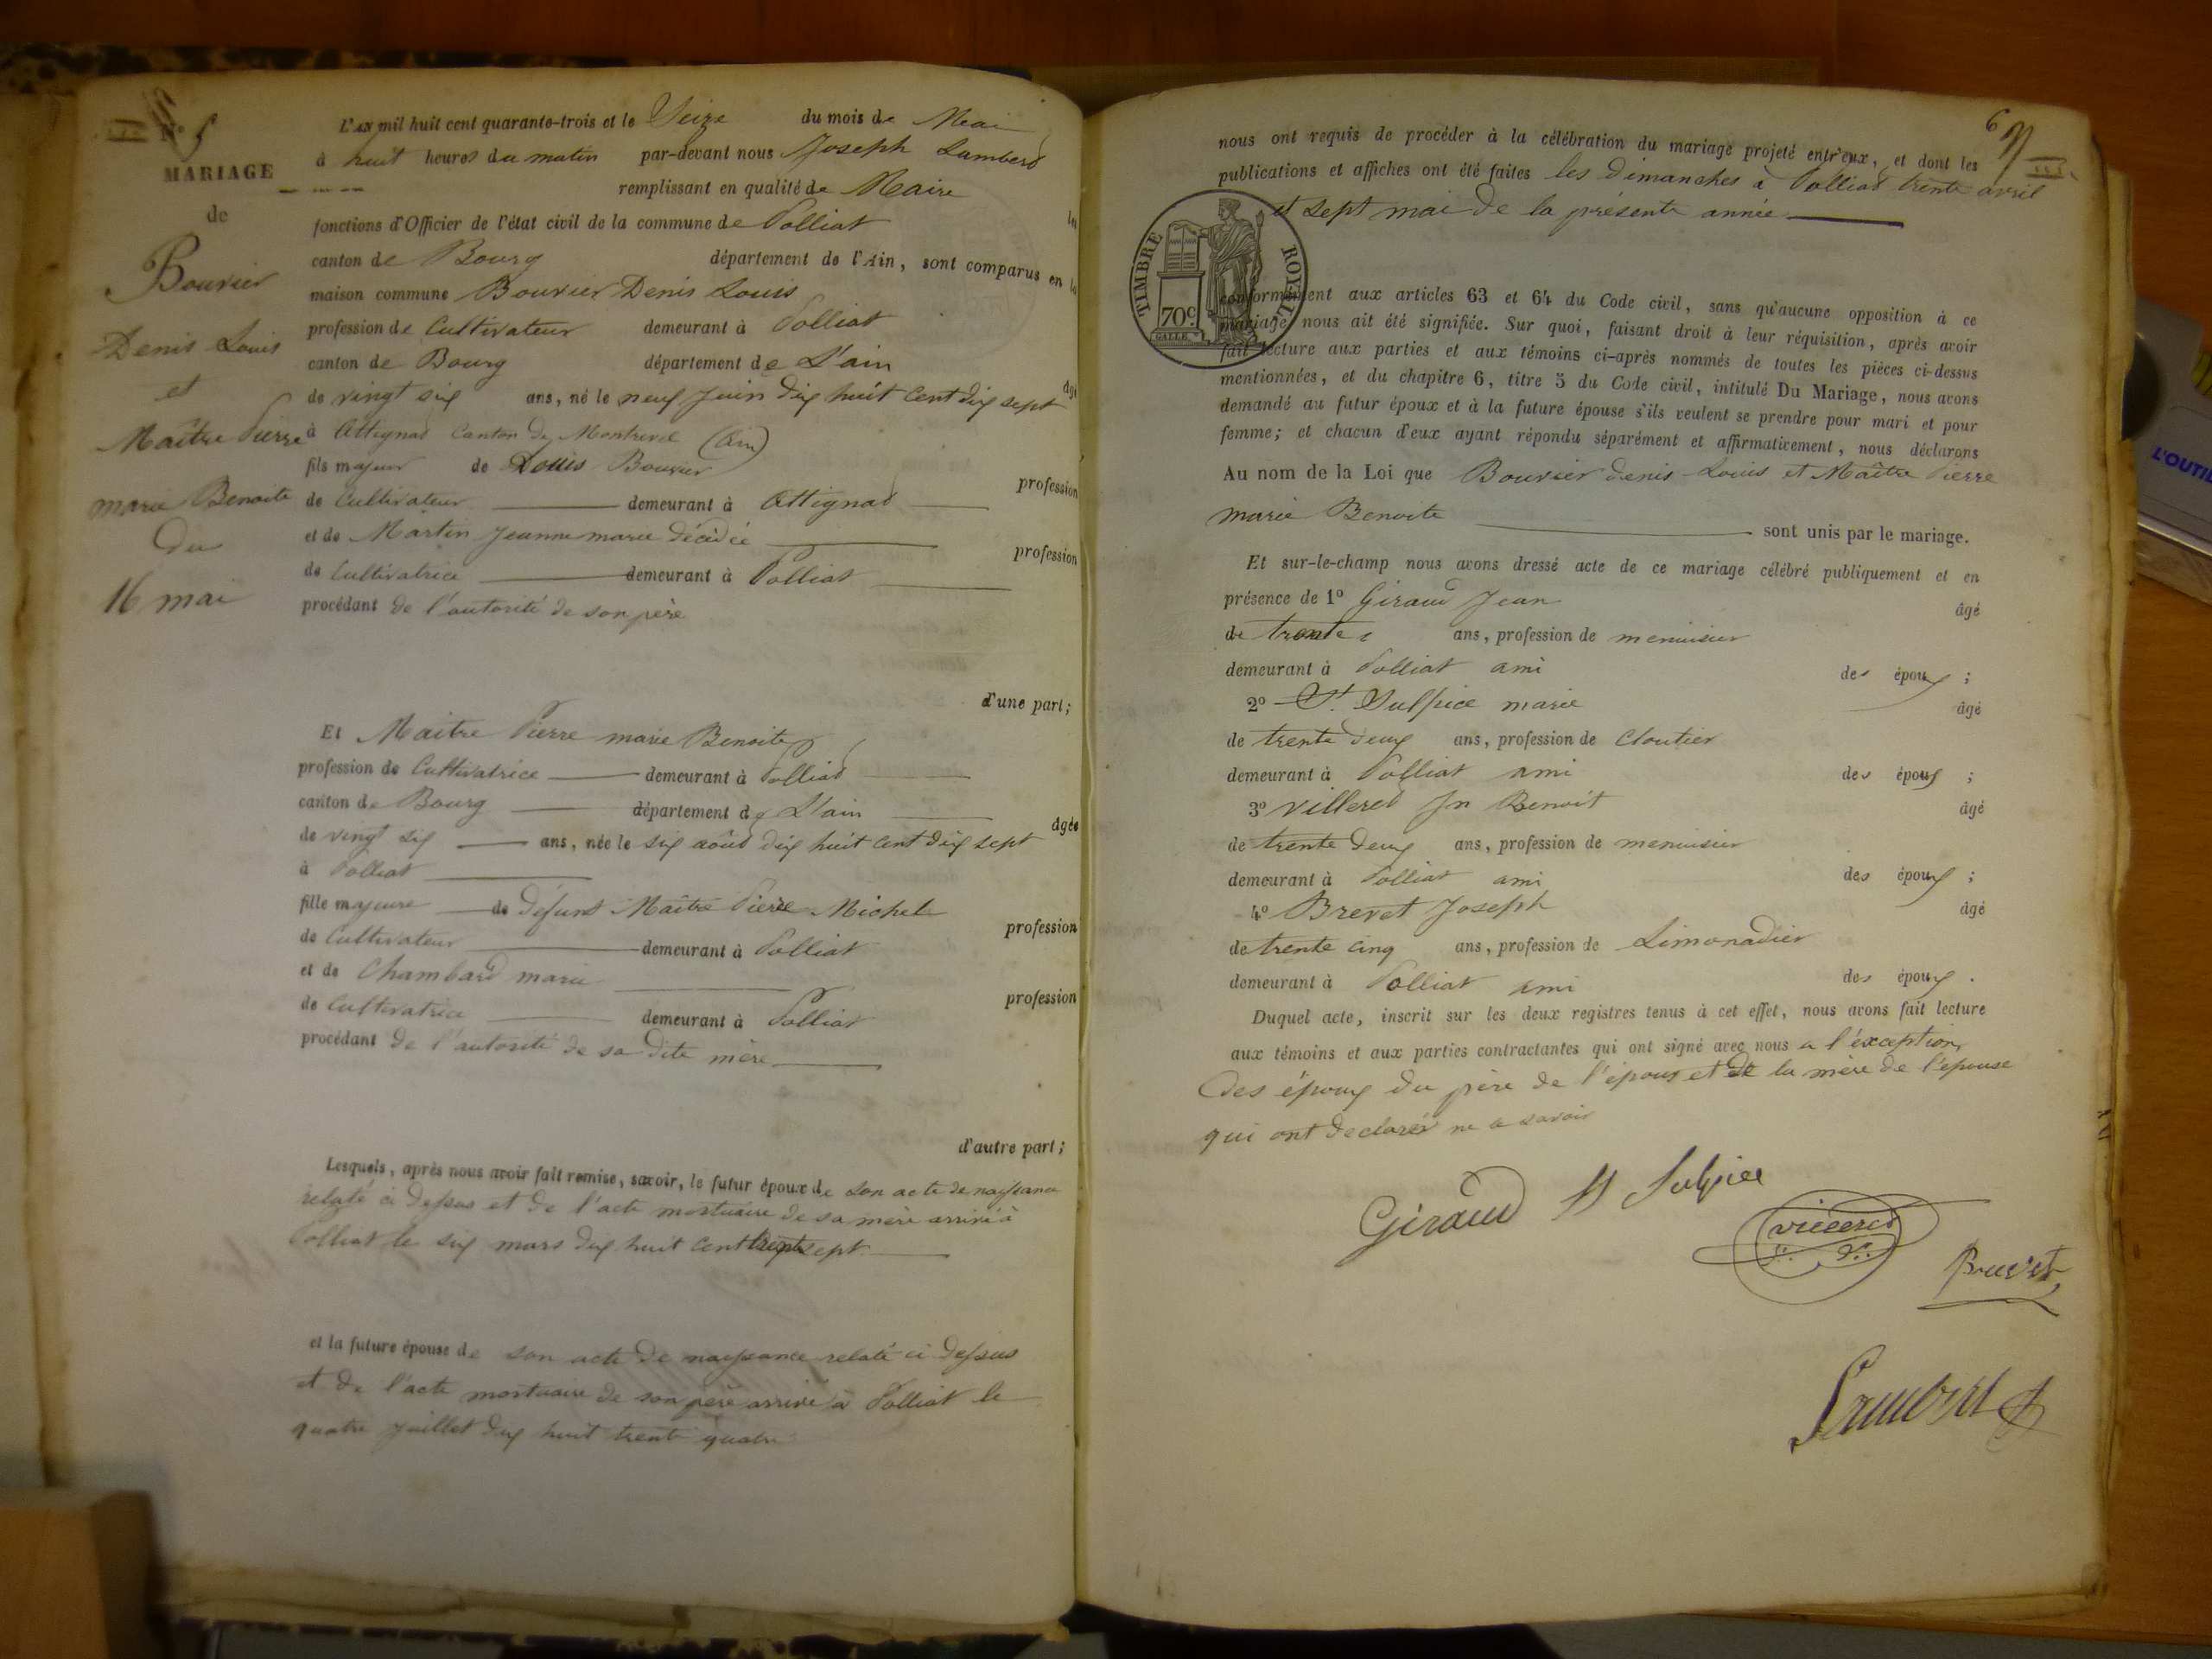 N° 5
MARIAGE
de
Bouvier
Denis Louis
et
Maître Pierre
marie Benoite
du
16 mai
L'AN mil huit cent quarante-trois et le Seize du mois de Mai
à huit heures du matin par-devant nous Joseph Lambert
remplissant en qualité de Maire les
fonctions d'Officier de l'état civil de la commune de Polliat
canton de Bourg département de l'Ain, sont comparus en la
maison commune Bouvier Denis Louis
profession de Cultivateur demeurant à Polliat
canton de Bourg département de L'ain âgé
de vingt six ans, né le neuf Juin dix huit cent dix sept
à Attignat Canton de Montrevel (Ain)
fils majeur de Louis Bouvier profession
de Cultivateur demeurant à Attignat
et de Martin Jeanne marie décédée profession
de Cultivatrice demeurant à Polliat
procédant de l'autorité de son père
d'une part;
Et Maitre Pierre marie Benoite
profession de Cultivatrice demeurant à Polliat
canton de Bourg département de L'ain âgée
de vingt six ans, née le six août dix huit cent dix sept
à Polliat
fille majeure de défunt Maître Pierre Michel profession
de Cultivateur demeurant à Polliat
et de Chambard marie profession
de Cultivatrice demeurant à Polliat
procédant de l'autorité de sa dite mère
d'autre part;
Lesquels, après nous avoir fait remise, savoir, le futur époux de son acte de naissance
relaté ci dessus et de l'acte mortuaire de sa mère arrivé à
Polliat le six mars dix huit cent trente sept
et la future épouse de son acte de naissance relaté ci dessus
et de l'acte mortuaire de son père arrivé à Polliat le
quatre juillet dix huit trente quatre
6
nous ont requis de procéder à la célébration du mariage projeté entr'eux, et dont les
publications et affiches ont été faites les dimanches à Polliat trente avril
et sept mai de la présente année
TIMBRE ROYAL
70c
conformément aux articles 63 et 64 du Code civil, sans qu'aucune opposition à ce
mariage nous ait été signifiée. Sur quoi, faisant droit à leur réquisition, après avoir
fait lecture aux parties et aux témoins ci-après nommés de toutes les pièces ci-dessus
mentionnées, et du chapitre 6, titre 5 du Code civil, intitulé Du Mariage, nous avons
demandé au futur époux et à la future épouse s'ils veulent se prendre pour mari et pour
femme; et chacun d'eux ayant répondu séparément et affirmativement, nous déclarons
Au nom de la Loi que Bouvier denis Louis et Maître Pierre
marie Benoite sont unis par le mariage.
Et sur-le-champ nous avons dressé acte de ce mariage célébré publiquement et en
présence de 1° Giraud Jean âgé
de trente ans, profession de menuisier
demeurant à Polliat ami des époux ;
2° St. Sulpice marie âgé
de trente deux ans, profession de Cloutier
demeurant à Polliat ami des époux ;
3° Villeret Jn Benoit âgé
de trente deux ans, profession de menuisier
demeurant à Polliat ami des époux ;
4° Brevet Joseph âgé
de trente cinq ans, profession de Limonadier
demeurant à Polliat ami des époux .
Duquel acte, inscrit sur les deux registres tenus à cet effet, nous avons fait lecture
aux témoins et aux parties contractantes qui ont signé avec nous a l'éxception
des époux du père de l'époux et de la mère de l'épouse
qui ont declarér ne a savoir
Giraud St Sulpice
Brevet
Lambert
L'OUTIL